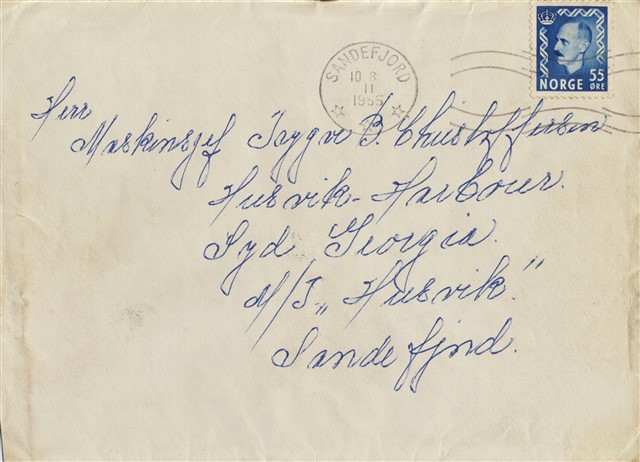 SANDEFJORD
10 8
11
1955
NORGE 55
ØRE
Herr
Maskinsjef Tryggve B. Christoffersen
Husvik-Harbour.
Syd Georgia.
M/T „Husvik."
Sandefjord.